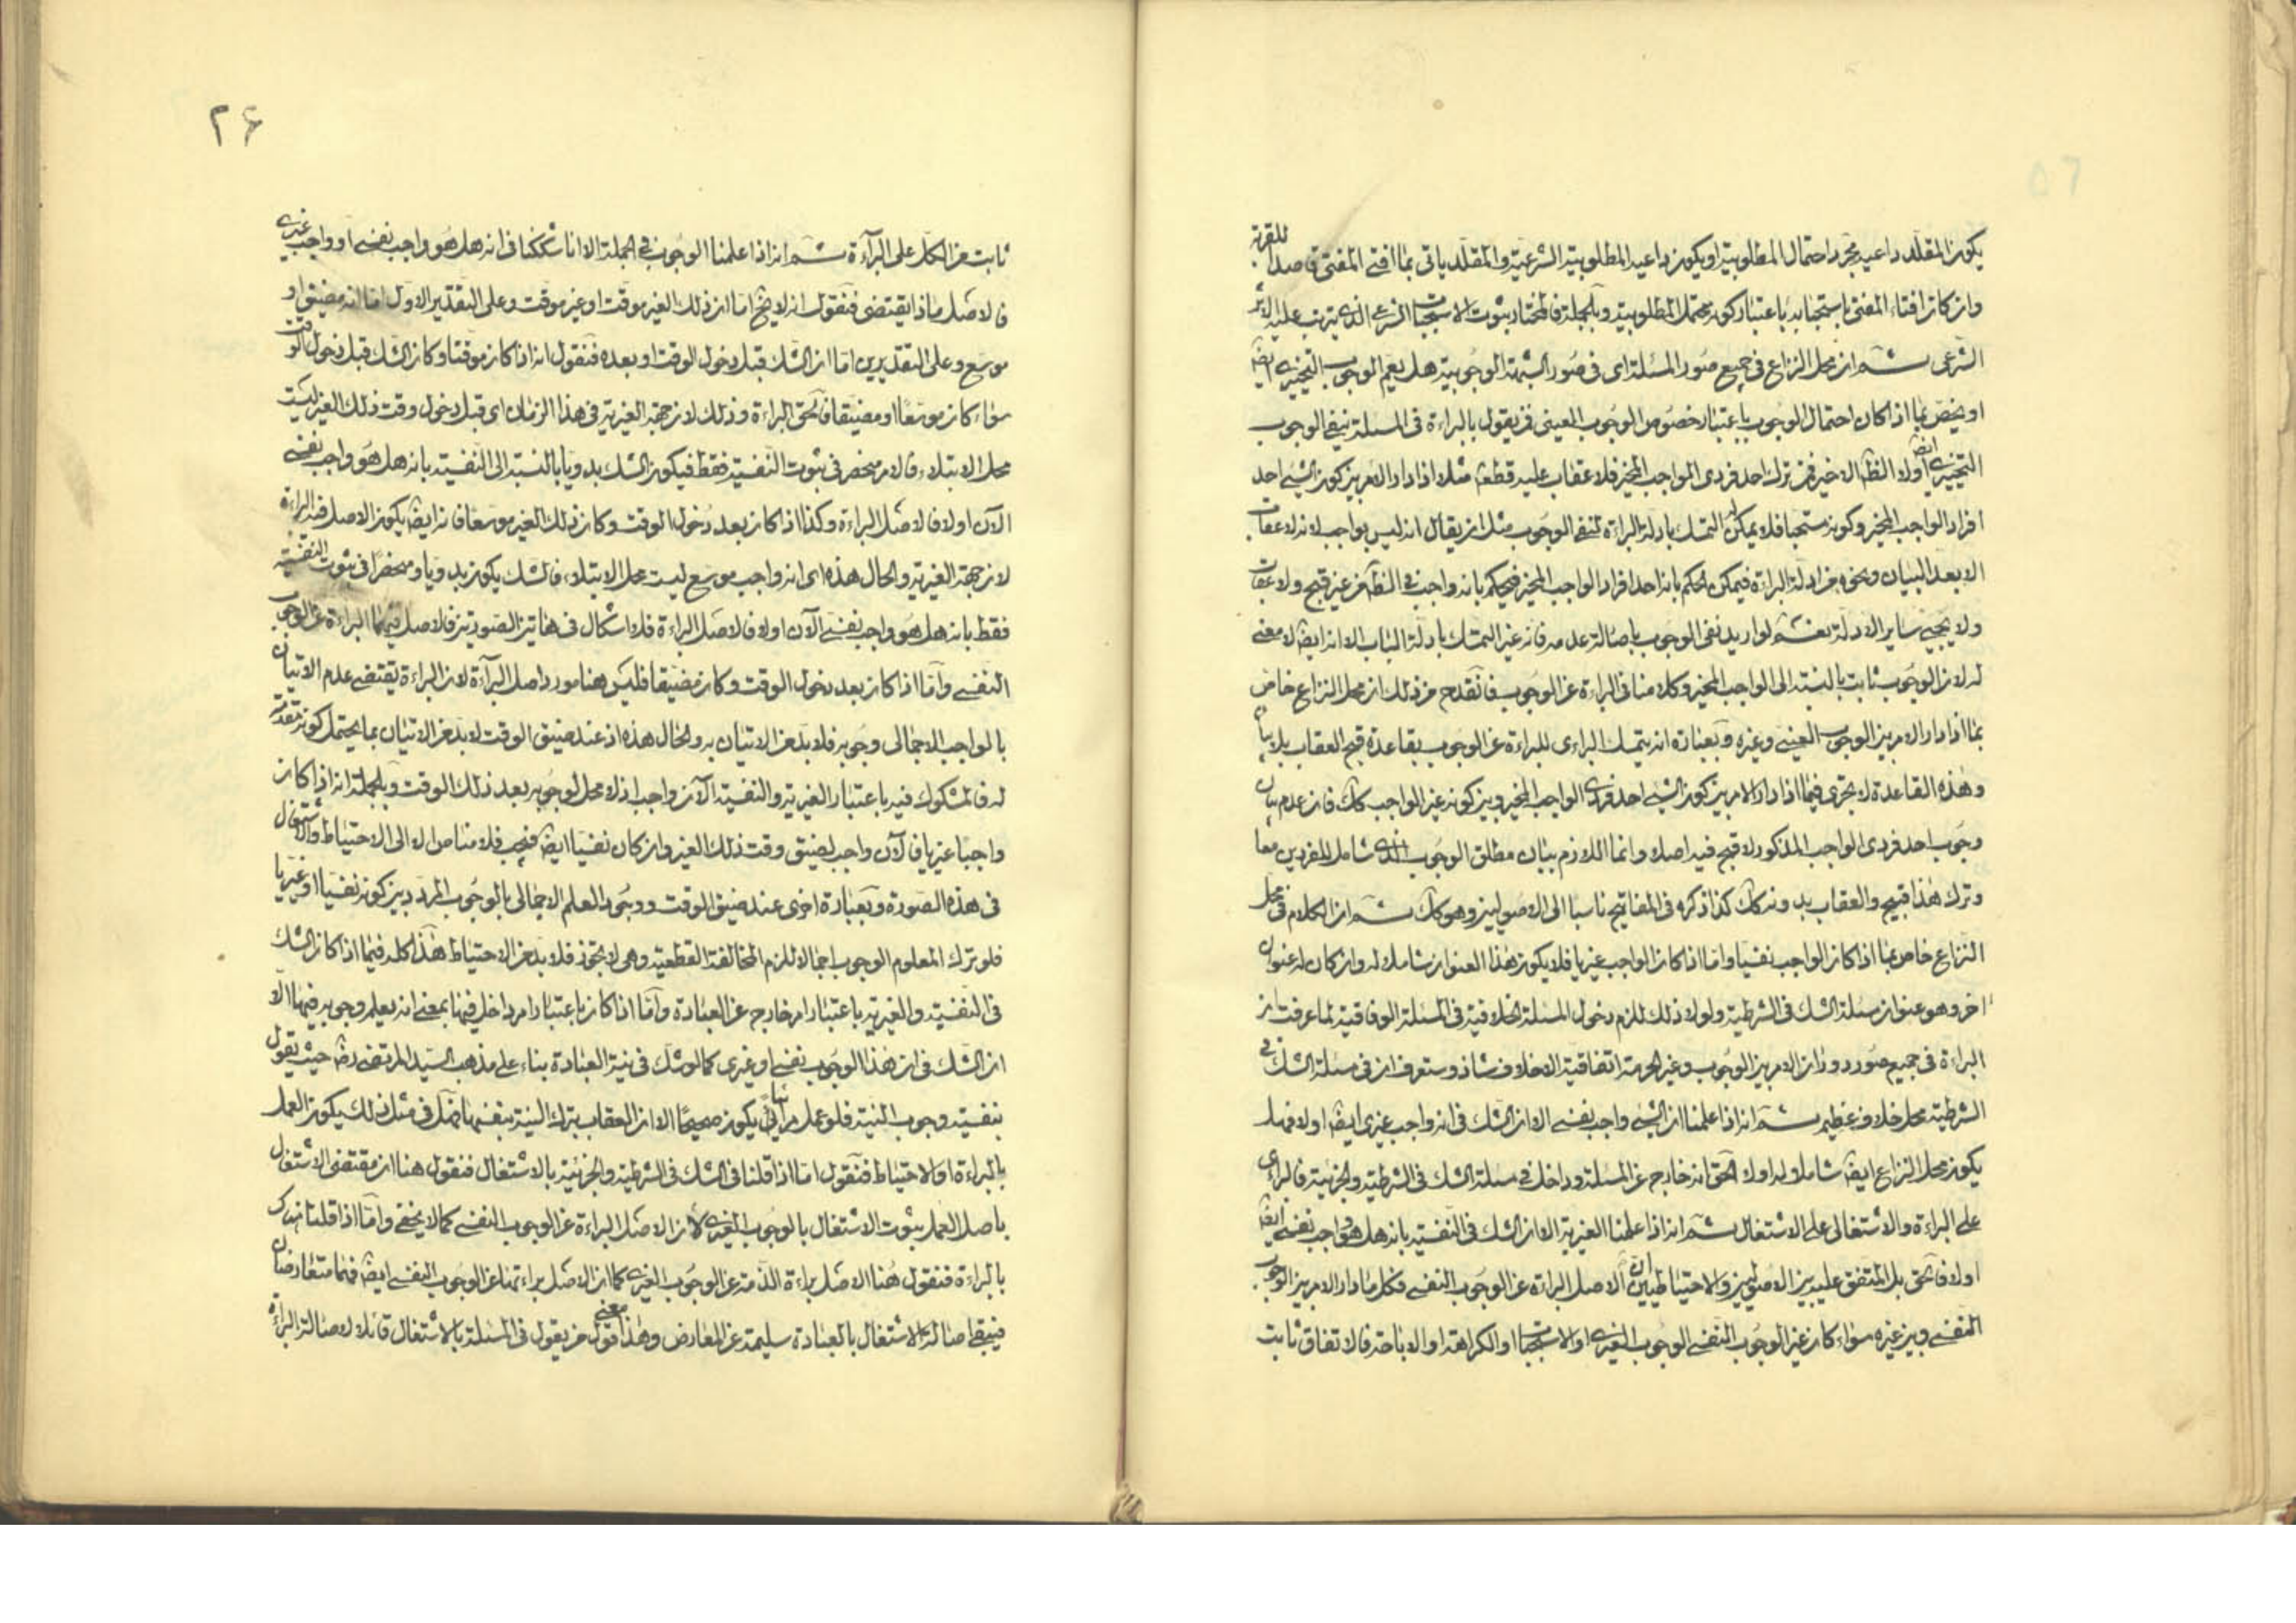 يكون المقلد داعيه مجرد احتمال المطلوبية او يكون داعيه المطلوبية الشرعية والمقلد ياتى بما افتى المفتى قاصدا للقربة
وان كان افتاء المفتى باستحبابه باعتبار كونه محتمل المطلوبية وبالجملة فالمختار ثبوت الاستحباب الشرعى الذى يترتب عليه الاثر
الشرعى ثم ان محل النزاع فى جميع صور المسئلة اى فى صور الشبهة الوجوبية هل يعم الوجوب التخييرى ايضا
او يختص بما اذا كان احتمال الوجوب باعتبار خصوص الوجوب العينى فمن يقول بالبراءة فى المسئلة ينفى الوجوب
التخييرى ايضا اولا الظ الاخير فمن ترك احد فردى الواجب المخير فلا عقاب عليه قطعا مثلا اذا دار الامر بين كون الشئ احد
افراد الواجب المخير وكونه مستحبا فلا يمكن التمسك بادلة البراءة لنفى الوجوب مثل ان يقال انه ليس بواجب لانه لا عقاب
الا بعد البيان ونحوه من ادلة البراءة فيمكن الحكم بانه احد افراد الواجب المخير فيحكم بانه واجب فى الظاهر من غير قبح ولا عقاب
ولا يجئ ساير الادلة نعم لو اريد نفى الوجوب باصالة عدمه فانه غير التمسك بادلة الباب الا انه ايضا لا معنى
له لان الوجوب ثابت بالنسبة الى الواجب المخير وكلامنا فى البراءة عن الوجوب فانقدح من ذلك ان محل النزاع خاص
بما اذا دار الامر بين الوجوب العينى وغيره وبعبارة انه يتمسك البراءى للبراءة عن الوجوب بقاعدة قبح العقاب بلا بيان
وهذه القاعدة لا تجرى فيما اذا دار الامر بين كون الشئ احد فردى الواجب المخير وبين كونه غير الواجب كك فان عدم بيان
وجوب احد فردى الواجب المذكور لا قبح فيه اصلا وانما اللازم بيان مطلق الوجوب الذى شامل للفردين معا
وترك هذا قبيح والعقاب بدونه كك كذا ذكره فى المفاتيح ناسبا الى الاصوليين وهو كك ثم ان الكلام فى محل
النزاع خاص بما اذا كان الواجب نفسيا واما اذا كان الواجب غيريا فلا يكون هذا العنوان شاملا له وان كان له عنوان
اخر وهو عنوان مسئلة الشك فى الشرطية ولولا ذلك للزم دخول المسئلة الخلافية فى المسئلة الوفاقية لما عرفت ان
البراءة فى جميع صور دوران الامر بين الوجوب وغير الحرمة اتفاقية الا خلاف شاذ وستعرف ان فى مسئلة الشك فى
الشرطية محل خلاف عظيم ثم انه اذا علمنا ان الشئ واجب نفسى الا ان الشك فى انه واجب غيرى ايضا اولا فهل
يكون محل النزاع ايضا شاملا له اولا الحق انه خارج عن المسئلة وداخل فى مسئلة الشك فى الشرطية والجزئية فالبراءى
على البراءة والاشتغالى على الاشتغال ثم انه اذا علمنا الغيرية الا ان الشك فى النفسية بانه هل هو واجب نفسى ايضا
اولا فالحق بل المتفق عليه بين الاصوليين والاحتياطيين ان الاصل البراءة عن الوجوب النفسى فكل ما دار الامر بين الوجوب
النفسى وبين غيره سواء كان غير الوجوب النفسى الوجوب الغيرى او الاستحباب او الكراهة او الاباحة فالاتفاق ثابت
٢۶
ثابت من الكل على البرآءة ثم انه اذا علمنا الوجوب فى الجملة الا انا شككنا فى انه هل هو واجب نفسى او واجب غيرى
فالاصل ماذا يقتضى فنقول انه لا يخ اما ان ذلك الغير موقت او غير موقت وعلى التقدير الاول اما انه مضيق او
موسع وعلى التقديرين اما ان الشك قبل دخول الوقت او بعده فنقول انه اذا كان موقتا وكان الشك قبل دخول الوقت
سواء كان موسعا او مضيقا فالحق البراءة وذلك لان جهة الغيرية فى هذا الزمان اى قبل دخول وقت ذلك الغير ليست
محل الابتلاء فالامر منحصر فى ثبوت النفسية فقط فيكون الشك بدويا بالنسبة الى النفسية بانه هل هو واجب نفسى
الآن اولا فالاصل البراءة وكذا اذا كان بعد دخول الوقت وكان ذلك الغير موسعا فانه ايضا يكون الاصل فيه البراءة
لان جهة الغيرية والحال هذه اى انه واجب موسع ليست محل الابتلاء فالشك يكون بدويا ومنحصرا فى ثبوت النفسية
فقط بانه هل هو واجب نفسى الآن اولا فالاصل البراءة فلا اشكال فى هاتين الصورتين فالاصل فيهما البراءة عن الوجوب
النفسى واما اذا كان بعد دخول الوقت وكان مضيقا فليس هنا مورد اصل البرآءة لان البراءة يقتضى عدم الاتيان
بالواجب الاجمالى وجوبه فلا بد من الاتيان به والحال هذه اذ عند ضيق الوقت لا بد من الاتيان بما يحتمل كونه مقدمة
له فالمشكوك فيه باعتبار الغيرية والنفسية الآن واجب اذ لا محل لوجوبه بعد ذلك الوقت وبالجملة انه اذا كان
واجبا غيريا فالآن واجب لضيق وقت ذلك الغير وان كان نفسيا ايضا فيجب فلا مناص الا الى الاحتياط والاشتغال
فى هذه الصورة وبعبارة اخرى عند ضيق الوقت ووجود العلم الاجمالى بالوجوب المردد بين كونه نفسيا او غيريا
فلو ترك المعلوم الوجوب اجمالا للزم المخالفة القطعية وهى لا يجوز فلا بد من الاحتياط هذا كله فيما اذا كان الشك
فى النفسية والغيرية باعتبار امر خارج عن العبادة واما اذا كان باعتبار امر داخل فيها بمعنى انه يعلم وجوبه فيها الا
ان الشك فى ان هذا الوجوب نفسى او غيرى كما لو شك فى نية العبادة بناء على مذهب السيد المرتضى رض حيث يقول
بنفسية وجوب النية فلو عمل مرائيا يكون صحيحا الا ان العقاب بترك النية بنفسها فهل فى مثل ذلك يكون العمل
بالبراءة او الاحتياط فنقول اما اذا قلنا فى الشك فى الشرطية والجزئية بالاشتغال فنقول هنا ان مقتضى الاشتغال
باصل العمل ثبوت الاشتغال بالوجوب الغيرى لان الاصل البراءة عن الوجوب النفسى كما لا يخفى واما اذا قلنا هناك
بالبراءة فنقول هنا الاصل براءة الذمة عن الوجوب الغيرى كما ان الاصل براءتها عن الوجوب النفسى ايضا فهما متعارضان
فيبقى اصالة الاشتغال بالعبادة سليمة عن المعارض وهذا معنى قول من يقول فى المسئلة بالاشتغال قائلا لاصالة البراءة